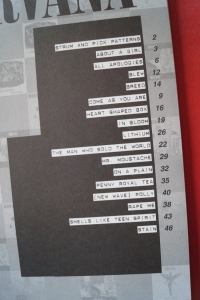 NIRVANA
STRUM AND PICK PATTERNS 2
ABOUT A GIRL 3
ALL APOLOGIES 6
BLEW 12
BREED 14
COME AS YOU ARE 9
HEART SHAPED BOX 16
IN BLOOM 19
LITHIUM 26
THE MAN WHO SOLD THE WORLD 22
MR. MOUSTACHE 29
ON A PLAIN 32
PENNY ROYAL TEA 35
(NEW WAVE) POLLY 40
RAPE ME 38
SMELLS LIKE TEEN SPIRIT 43
STAIN 46